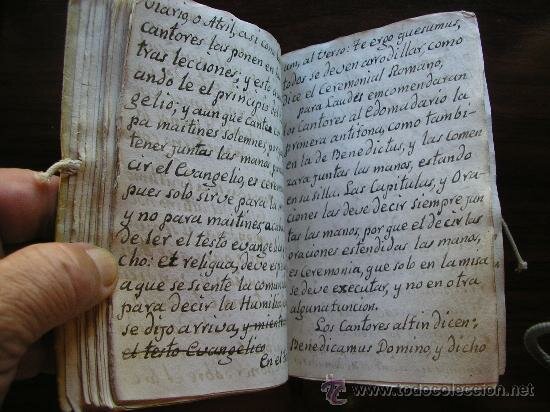 Diario, o Atril, asi como
cantores las ponen en
tras lecciones; y esto
ando le el principio del
gelio; y aunque cante
pa maitines solemnes, por
tener juntas las manos pa
cir el Evangelio, es cere
pues solo sirve para la
y no para maitines, aca
de ler el testo evange
cho: et reliqua, deve espe
a que se siente la comu
para decir la Humilia,
se dijo arriva, y mientr
el testo Evangelico
En el
um, al verso: te ergo quesumus,
todos se deven arrodillar, como
dice el Ceremonial Romano,
para Laudes encomendaran
los Cantores al Edomadario la
primera antifona, como tambi-
en la de Benedictus, y las comen
zara juntas las manos, estando
en su silla. Las Capitulas, y Ora-
ciones las deve decir siempre jun
tas las manos, por que el decir las
oraciones estendidas las manos,
es ceremonia, que solo en la misa
se deve executar, y no en otra
alguna funcion.
Los Cantores al fin dicen:
Benedicamus Domino, y dicho
www.todocoleccion.net